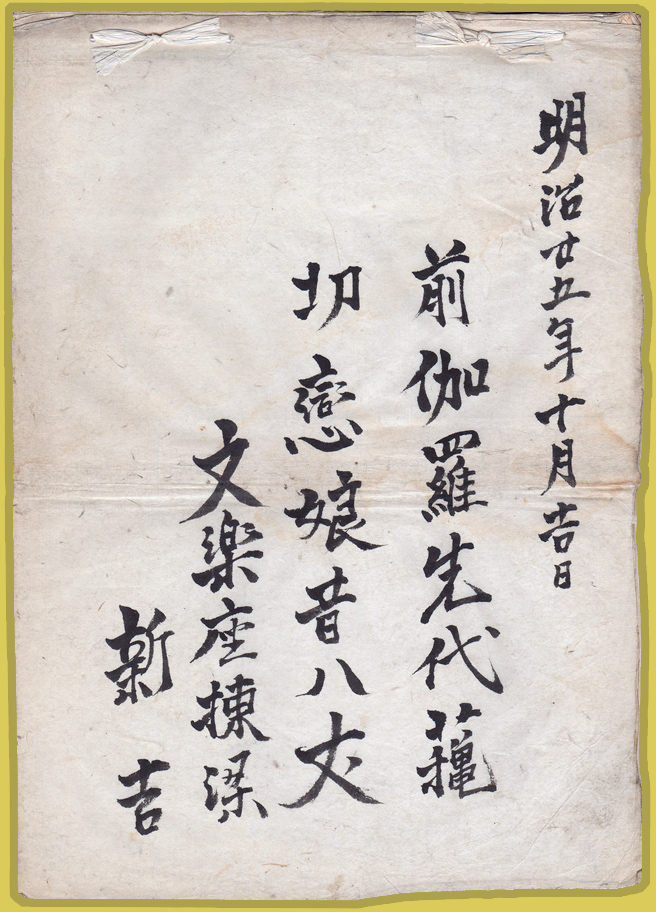 明治廿五年十月吉日
前伽羅先代萩
切戀娘昔八丈
文楽座棟梁
新吉